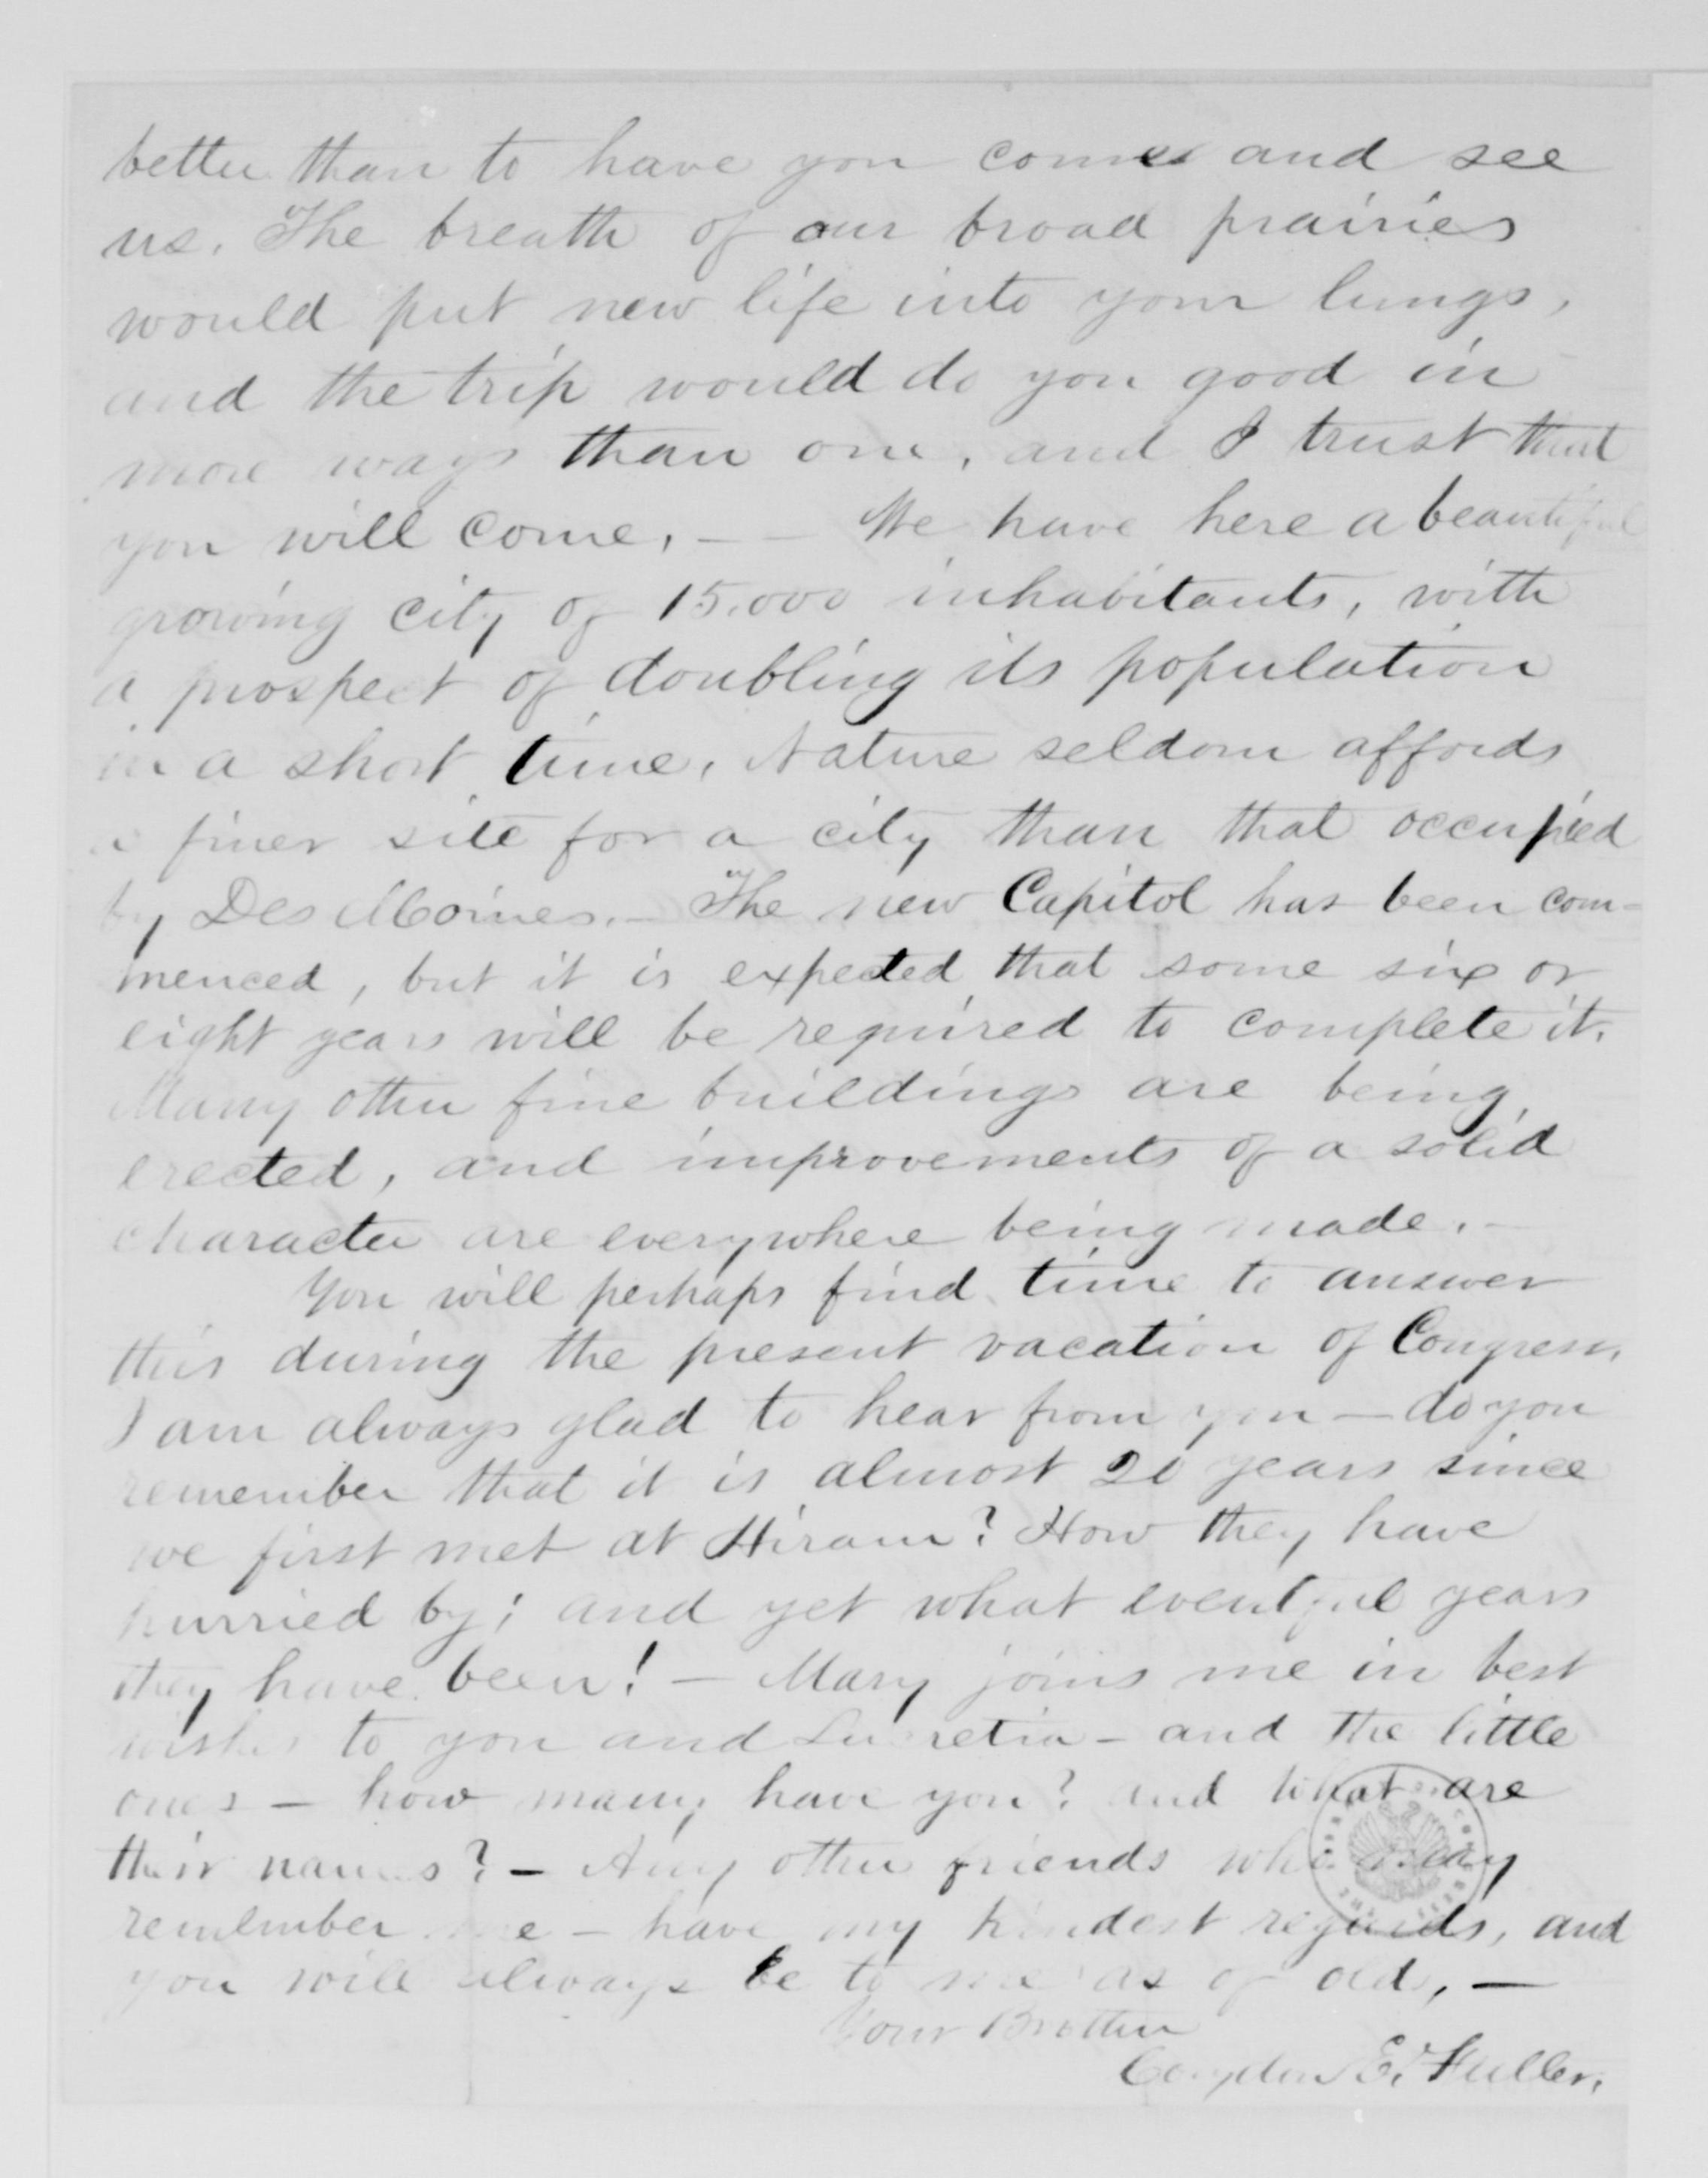 better than to have you come and see
us. The breath of our broad prairies
would put new life into your lungs,
and the trip would do you good in
more ways than one, and I trust that
you will come. - - We have here a beautiful
growing city of 15.000 inhabitants, with
a prospect of doubling its population
in a short time. Nature seldom affords
a finer site for a city than that occupied
by Des Moines. - The new Capitol has been com-
menced, but it is expected that some six or
eight years will be required to complete it.
Many other fine buildings are being
erected, and improvements of a solid
character are everywhere being made. -
You will perhaps find time to answer
this during the present vacation of Congress.
I am always glad to hear from you - do you
remember that it is almost 20 years since
we first met at Hiram? How they have
hurried by; and yet what eventful years
they have been! - Mary joins me in best
wishes to you and Lucretia - and the little
ones - how many have you? and what are
their names? - Any other friends who may
remember me - have my kindest regards, and
you will always be to me as of old, -
Your Brother
Corydon E. Fuller.